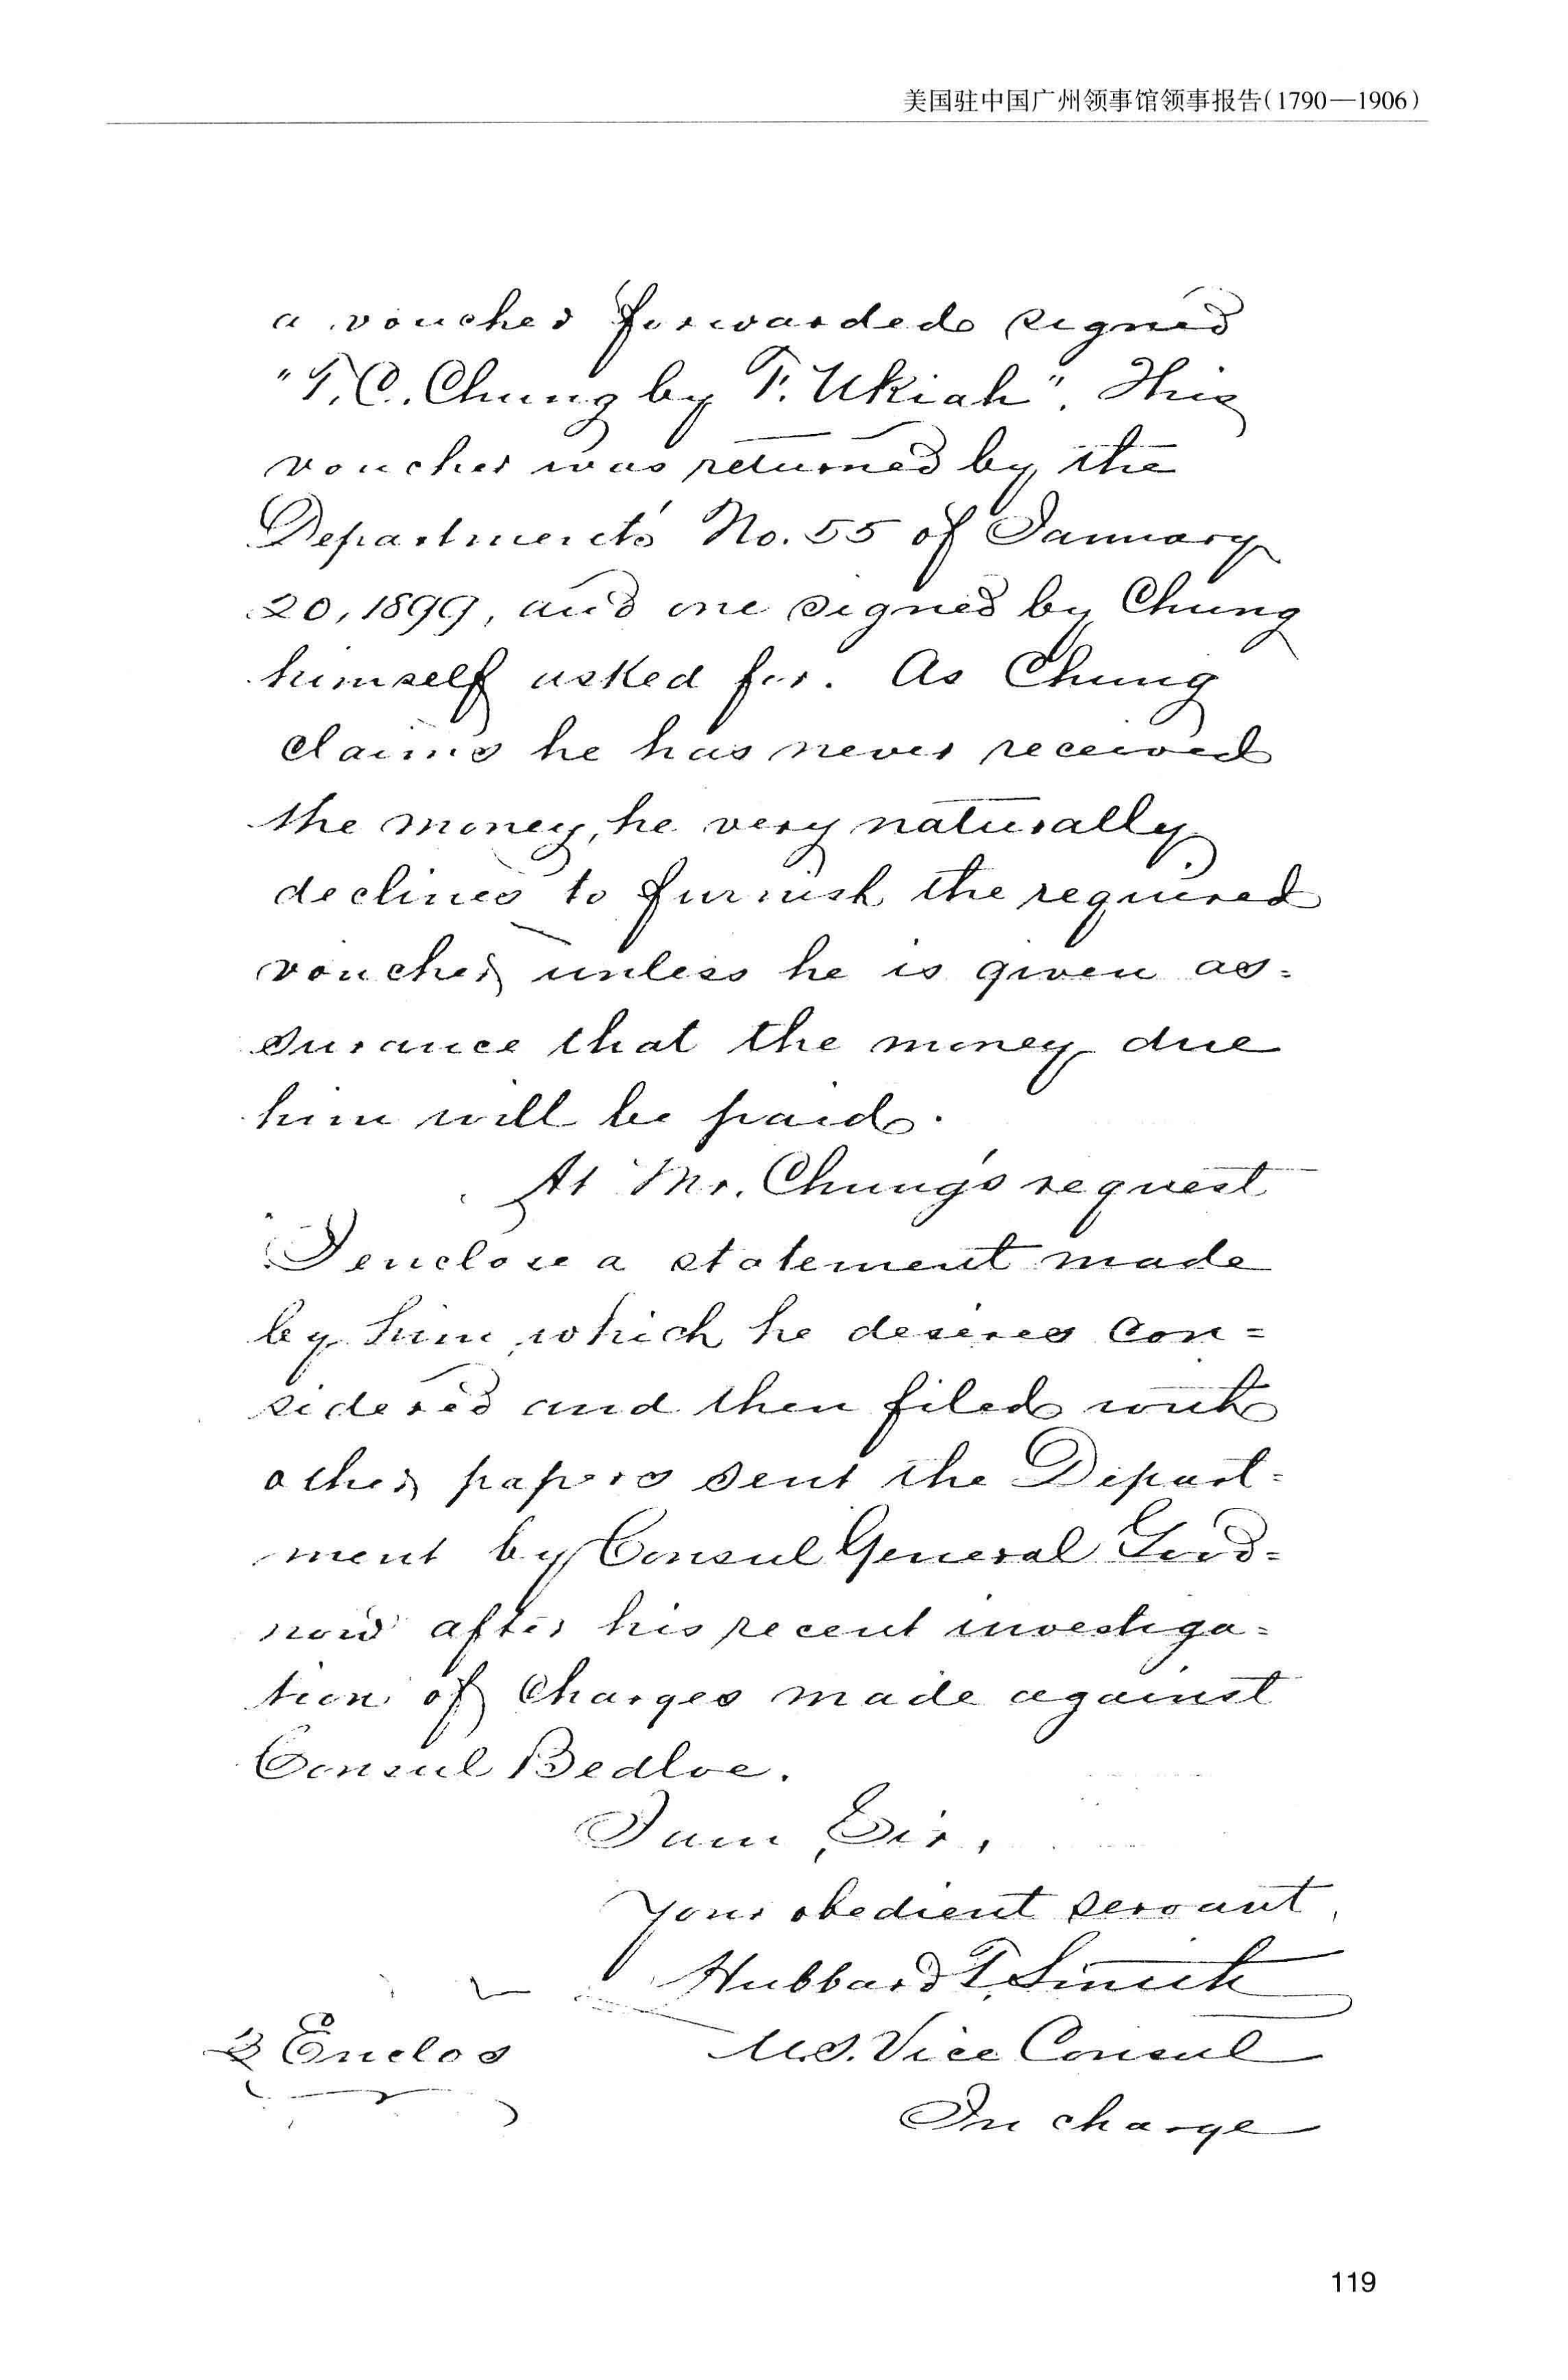 美国驻中国广州领事馆领事报告(1790—1906)
a voucher forwarded signed
"T. C. Chung by F. Ukiah". This
voucher was returned by the
Department's No. 55 of January
20, 1899, and one signed by Chung
himself asked for. As Chung
claims he has never received
the money, he very naturally
declines to furnish the required
voucher unless he is given as=
surance that the money due
him will be paid.
At Mr. Chung's request
I enclose a statement made
by him, which he desires con=
sidered and then filed with
other papers sent the Depart=
ment by Consul General Good=
now after his recent investiga=
tion of charges made against
Consul Bedloe.
I am, Sir,
Your obedient servant,
Hubbard T. Smith
U.S. Vice Consul
In charge
Enclos
119